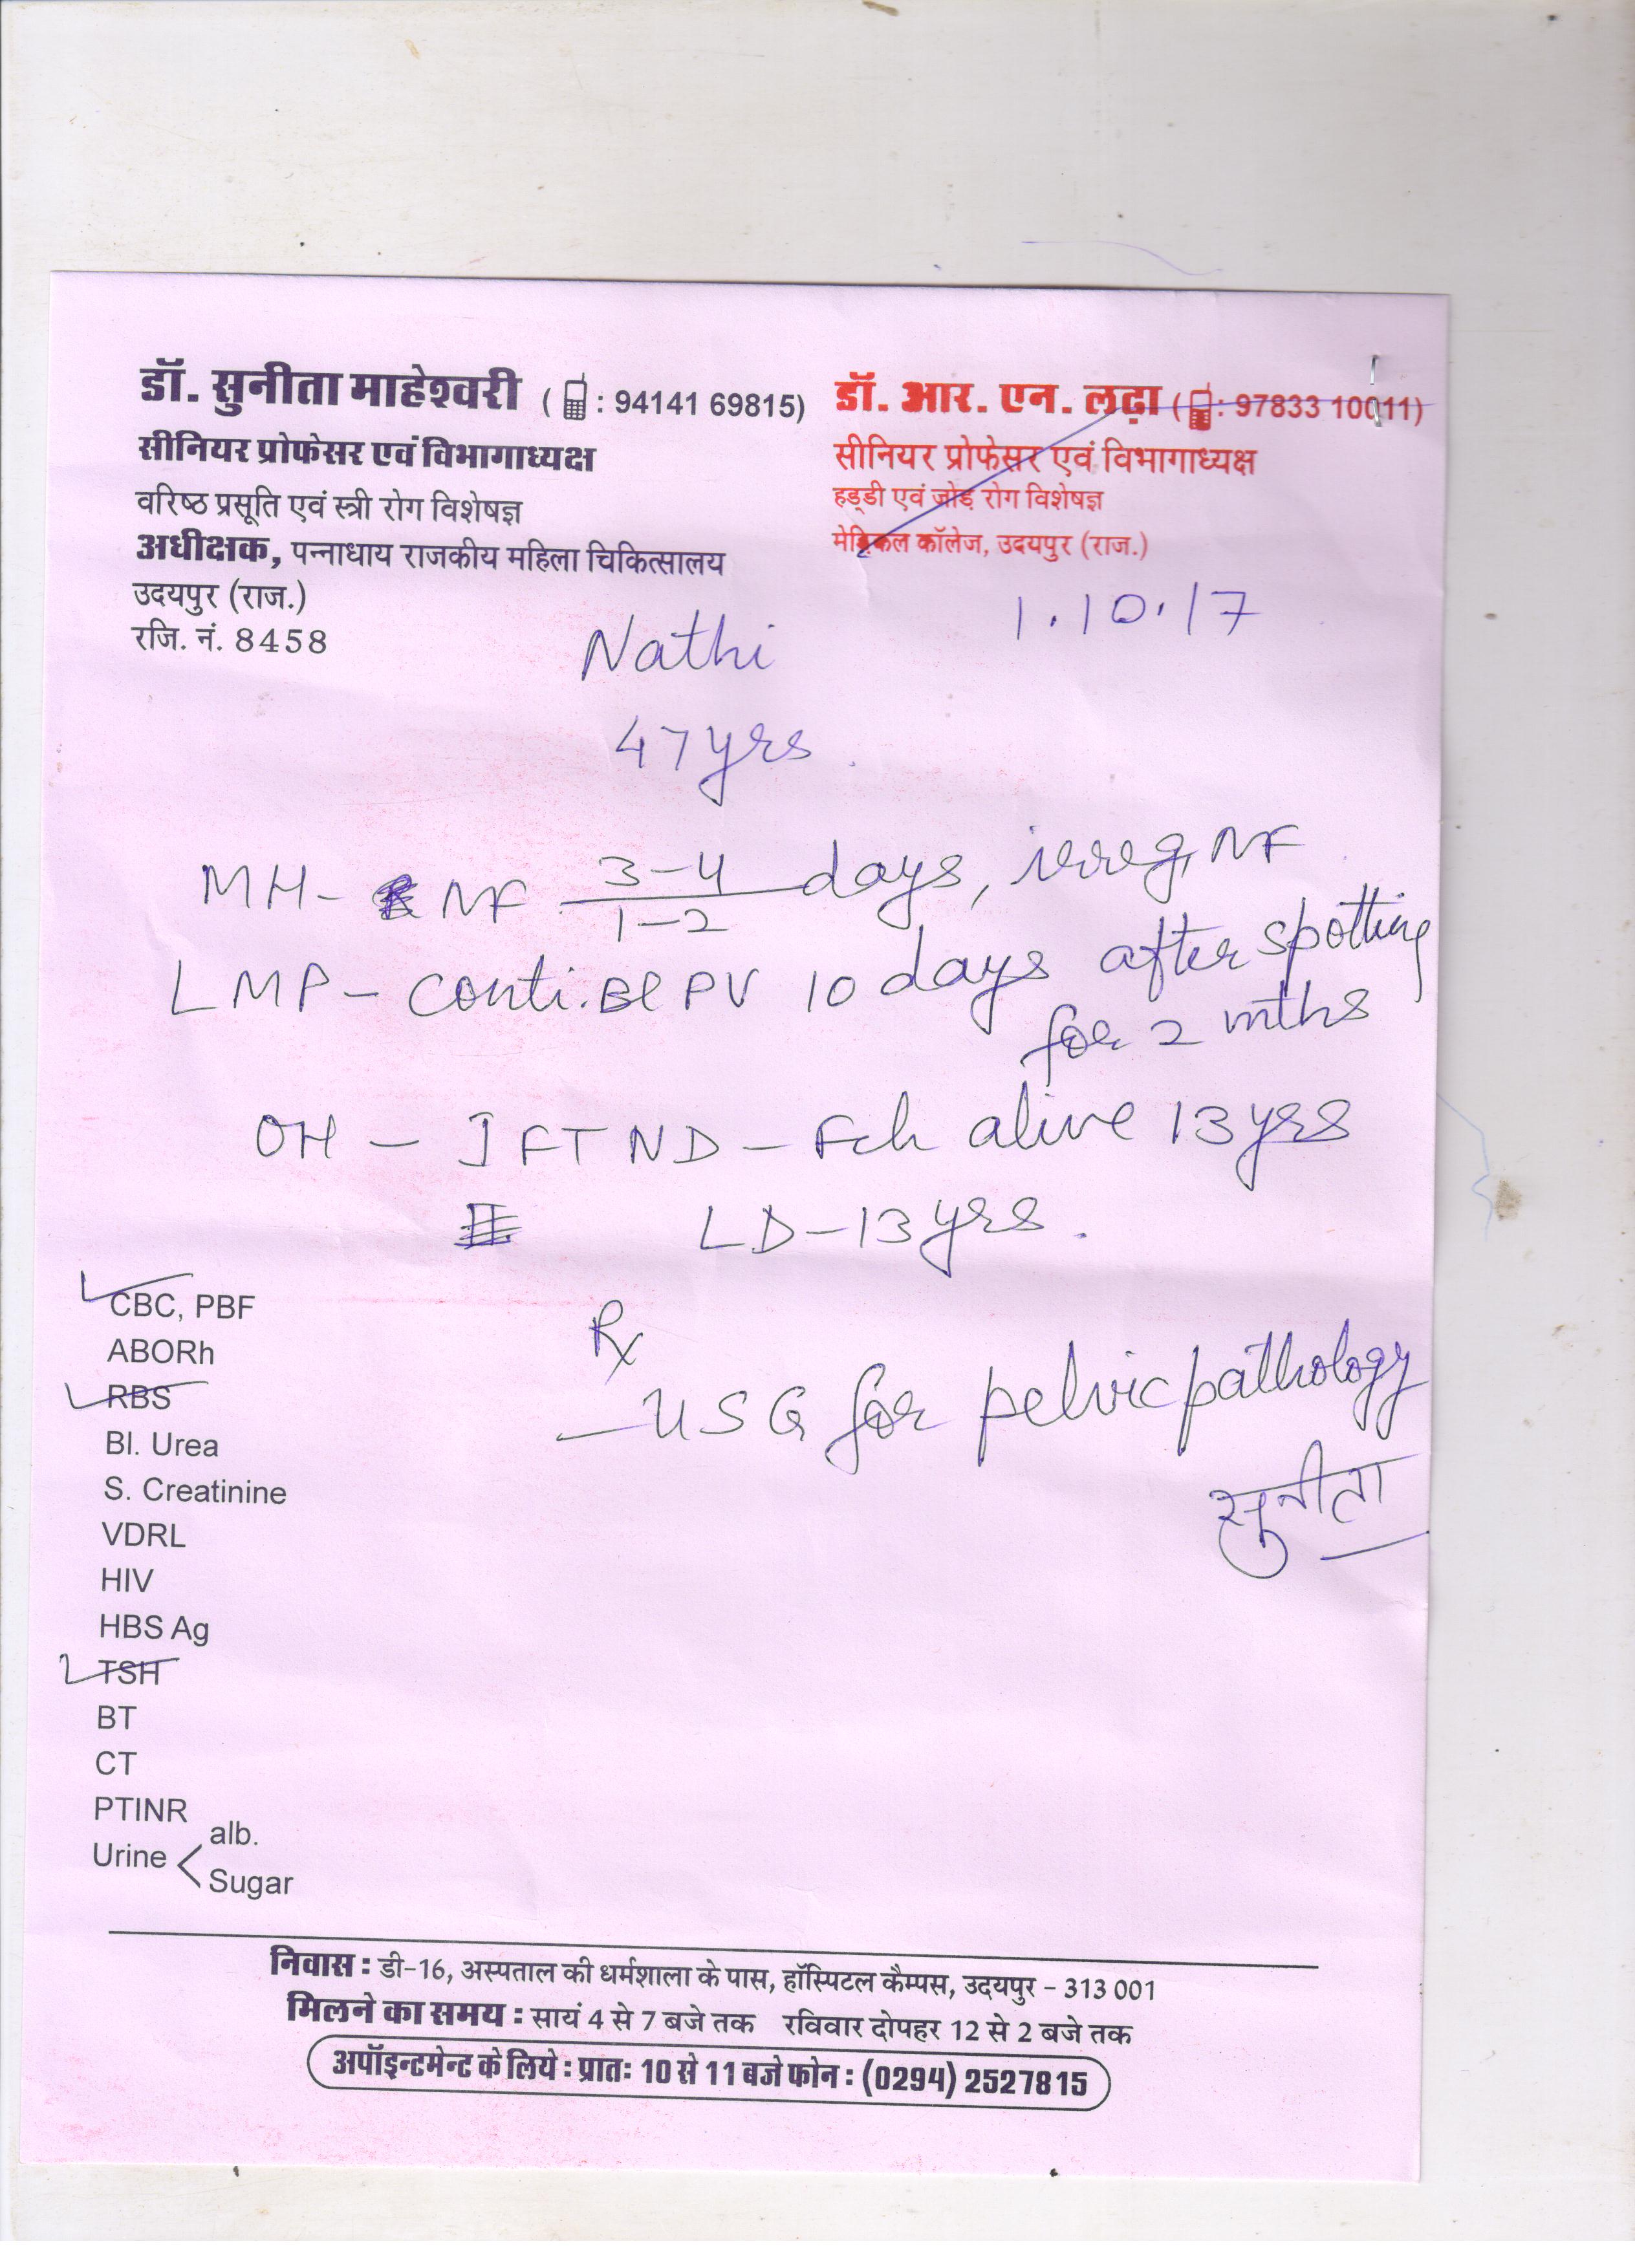 डॉ. सुनीता माहेश्वरी ( : 94141 69815)
सीनियर प्रोफेसर एवं विभागाध्यक्ष
वरिष्ठ प्रसूति एवं स्त्री रोग विशेषज्ञ
अधीक्षक, पन्नाधाय राजकीय महिला चिकित्सालय
उदयपुर (राज.)
रजि. नं. 8458
डॉ. आर. एन. लढ़ा ( : 97833 10011)
सीनियर प्रोफेसर एवं विभागाध्यक्ष
हड्डी एवं जोड़ रोग विशेषज्ञ
मेडिकल कॉलेज, उदयपुर (राज.)
1.10.17
Nathi
47 yrs
MH - NF 3-4/1-2 days, irreg, NF
LMP - conti. Bl PV 10 days after spotting
for 2 mths
OH - I FTND - Fch alive 13 yrs
LD - 13 yrs.
CBC, PBF
ABORh
RBS
Bl. Urea
S. Creatinine
VDRL
HIV
HBS Ag
TSH
BT
CT
PTINR
Urine < alb.
Sugar
Rx
- USG for pelvic pathology
सुनीता
निवास : डी-16, अस्पताल की धर्मशाला के पास, हॉस्पिटल कैम्पस, उदयपुर - 313 001
मिलने का समय : सायं 4 से 7 बजे तक रविवार दोपहर 12 से 2 बजे तक
अपॉइन्टमेन्ट के लिये : प्रातः 10 से 11 बजे फोन : (0294) 2527815